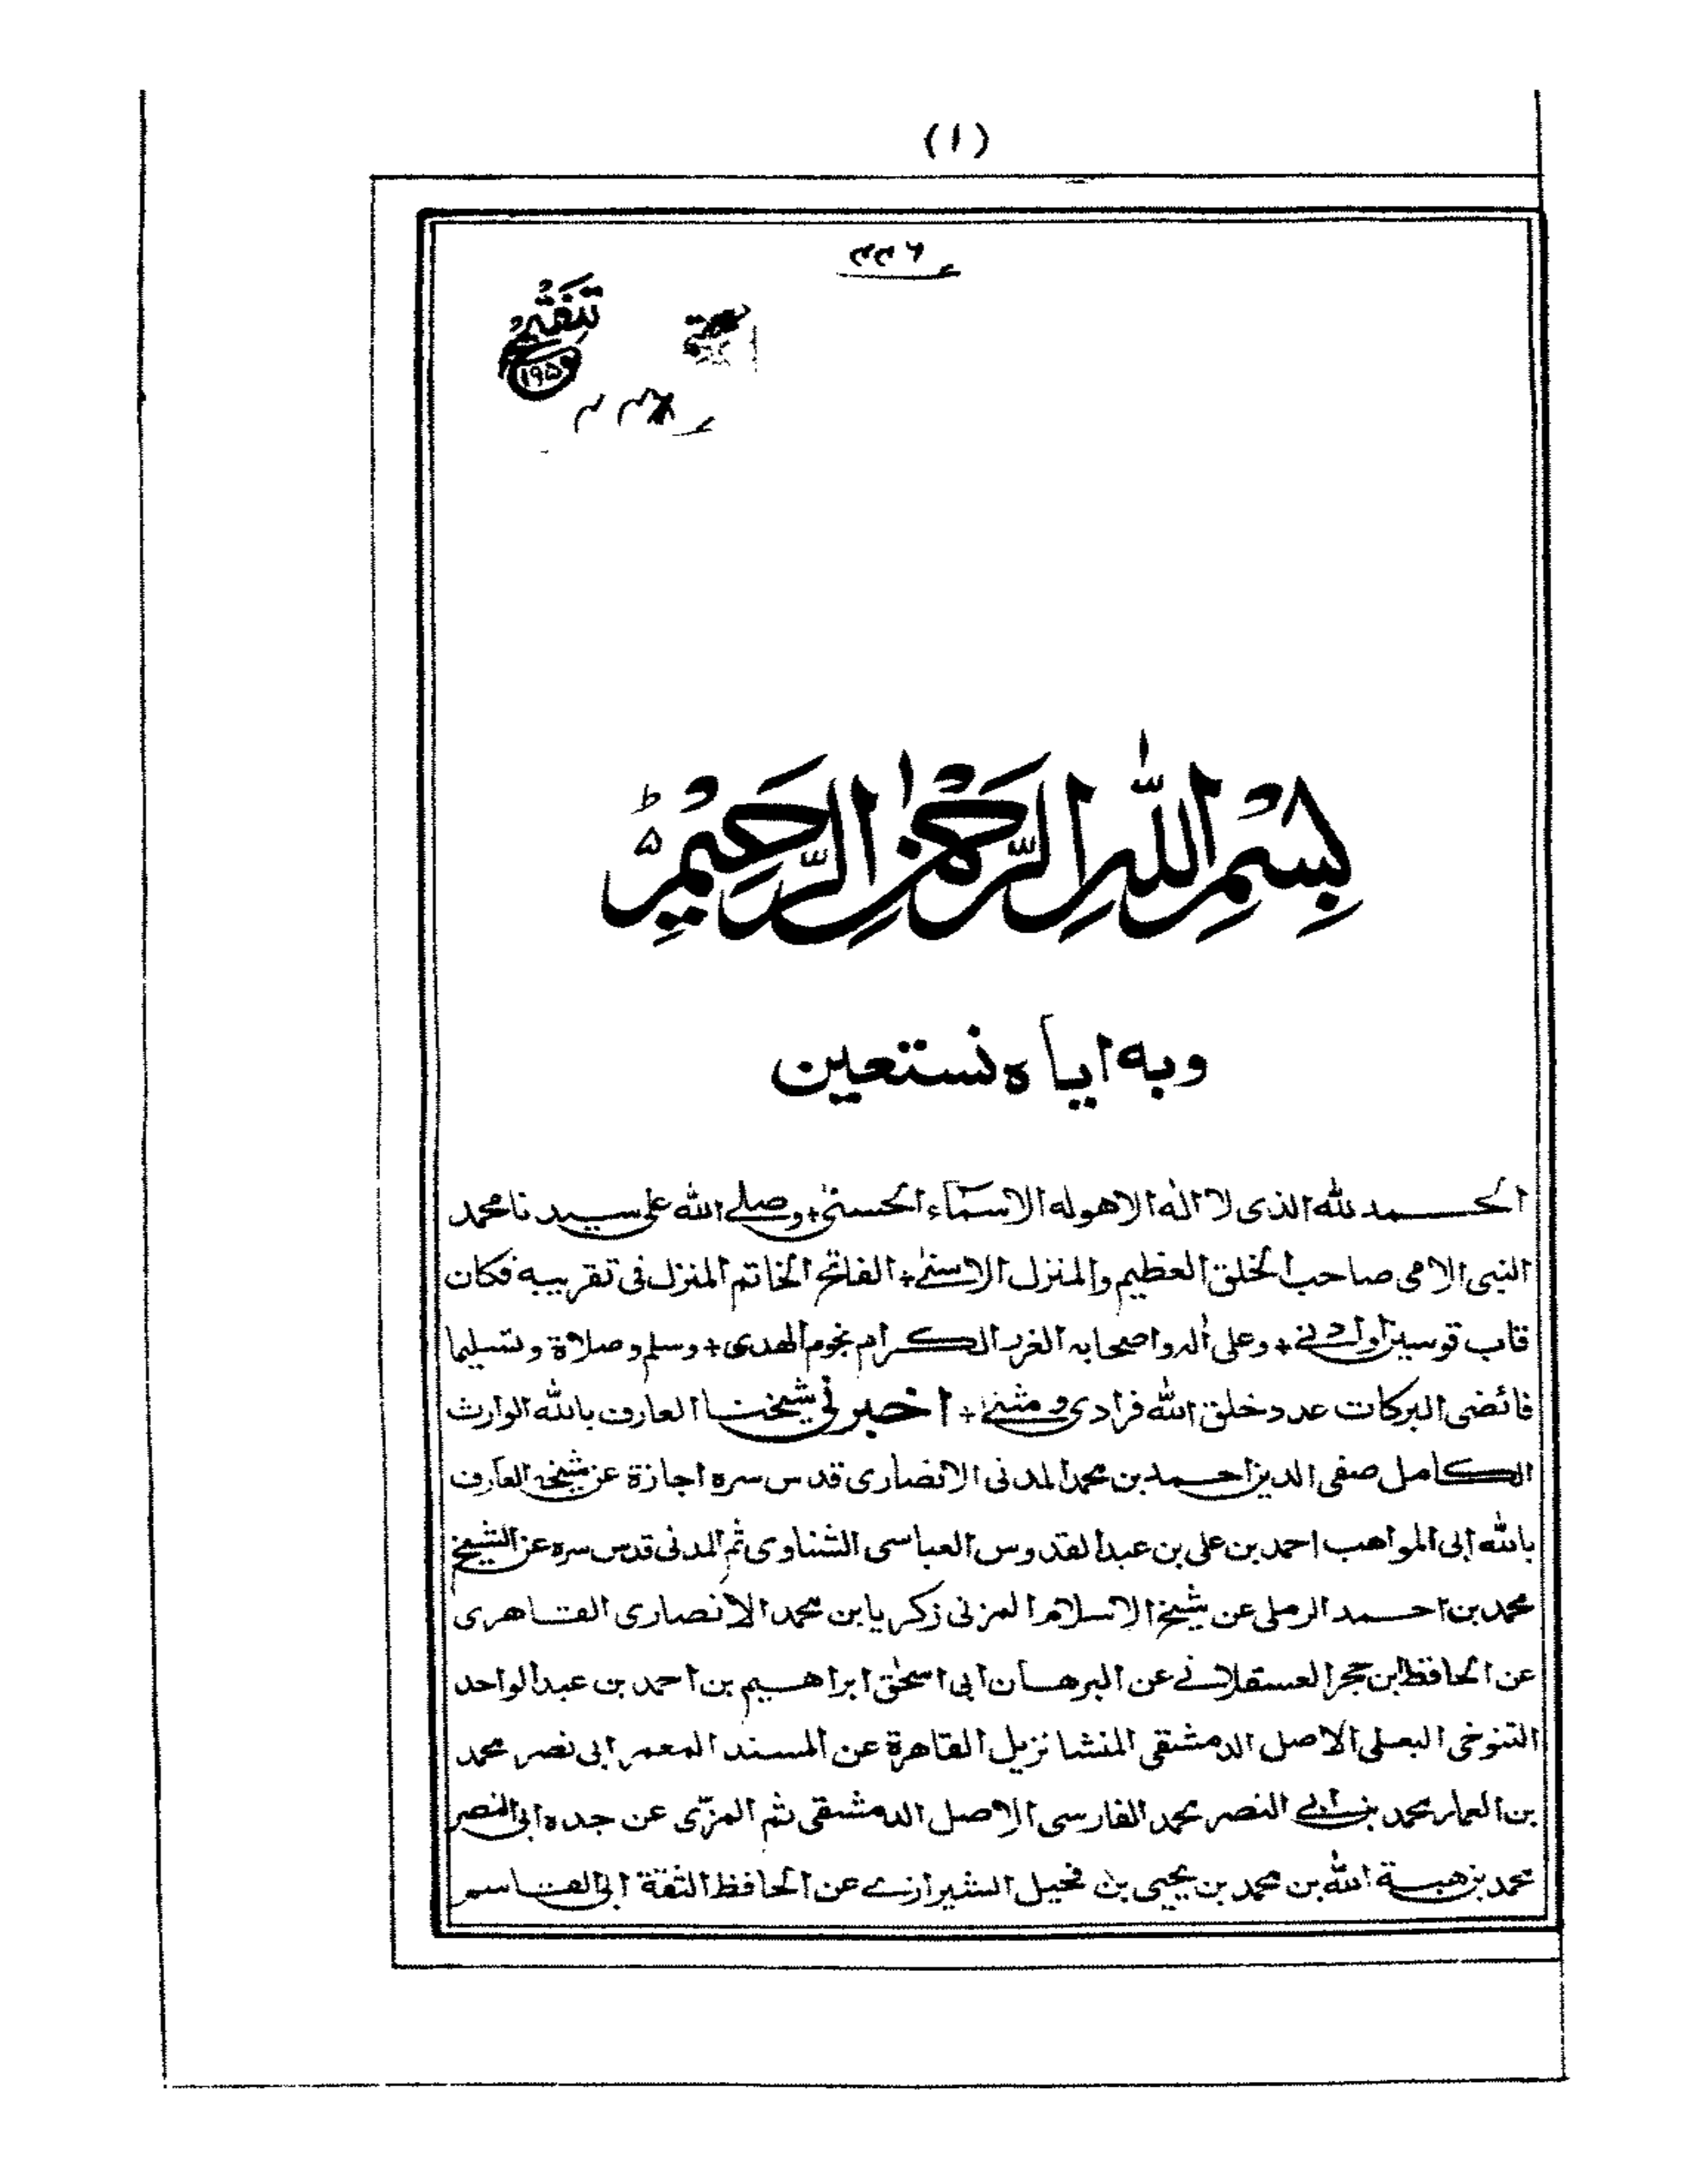 (١)
٢٢٦
تنقيح
١٩٥
بِسْمِ اللهِ الرَّحْمٰنِ الرَّحِيْمِ ط
۵
وبه اياه نستعين
الحـمد لله الذى لا اله الا هو له الاسمآء الحسنى + وصلے الله على سيدنا محمد
النبى الامى صاحب الخلق العظيم والمنزل الاسنى + الفاتح الخاتم المنزل فى تقريبه فكان
قاب قوسين او ادنے + وعلى اٰله واصحابه الغرر الكرام نجوم الهدى + وسلم وصلاة وتسليما
فائضى البركات عدد خلق الله فرادى ومثنى + اخبرنى شيخنا العارف بالله الوارث
الكامل صفى الدين احمد بن محمد المدنى الانصارى قدس سره اجازة عن شيخه العارف
بالله ابى المواهب احمد بن على بن عبد القدوس العباسى الشناوى ثم المدنى قدس سره عن الشيخ
محمد بن احمد الرملى عن شيخ الاسلام المزنى زكريا بن محمد الانصارى القاهرى
عن الحافظ ابن حجر العسقلانے عن البرهان ابى اسحٰق ابراهيم بن احمد بن عبد الواحد
التنوخى البعلى الاصل الدمشقى المنشا نزيل القاهرة عن المسند المعمر ابى نصر محمد
بن العمار محمد بن ابى النصر محمد الفارسى الاصل الدمشقى ثم المزّى عن جده ابى النصر
محمد بن هبة الله بن محمد بن يحيى بن مخيل الشيرازے عن الحافظ الثقة ابى القاسم